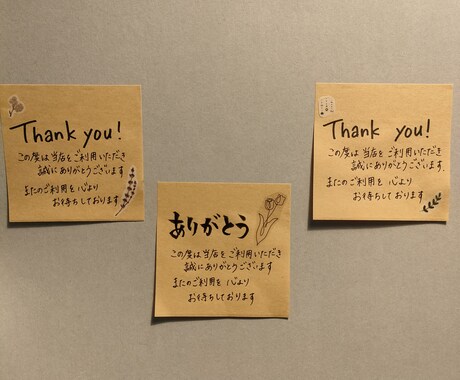 Thank you!
この度は当店をご利用いただき
誠にありがとうございます
またのご利用を心より
お待ちしております
ありがとう
この度は当店をご利用いただき
誠にありがとうございます
またのご利用を心より
お待ちしております
Thank you!
この度は当店をご利用いただき
誠にありがとうございます。
またのご利用を心より
お待ちしております